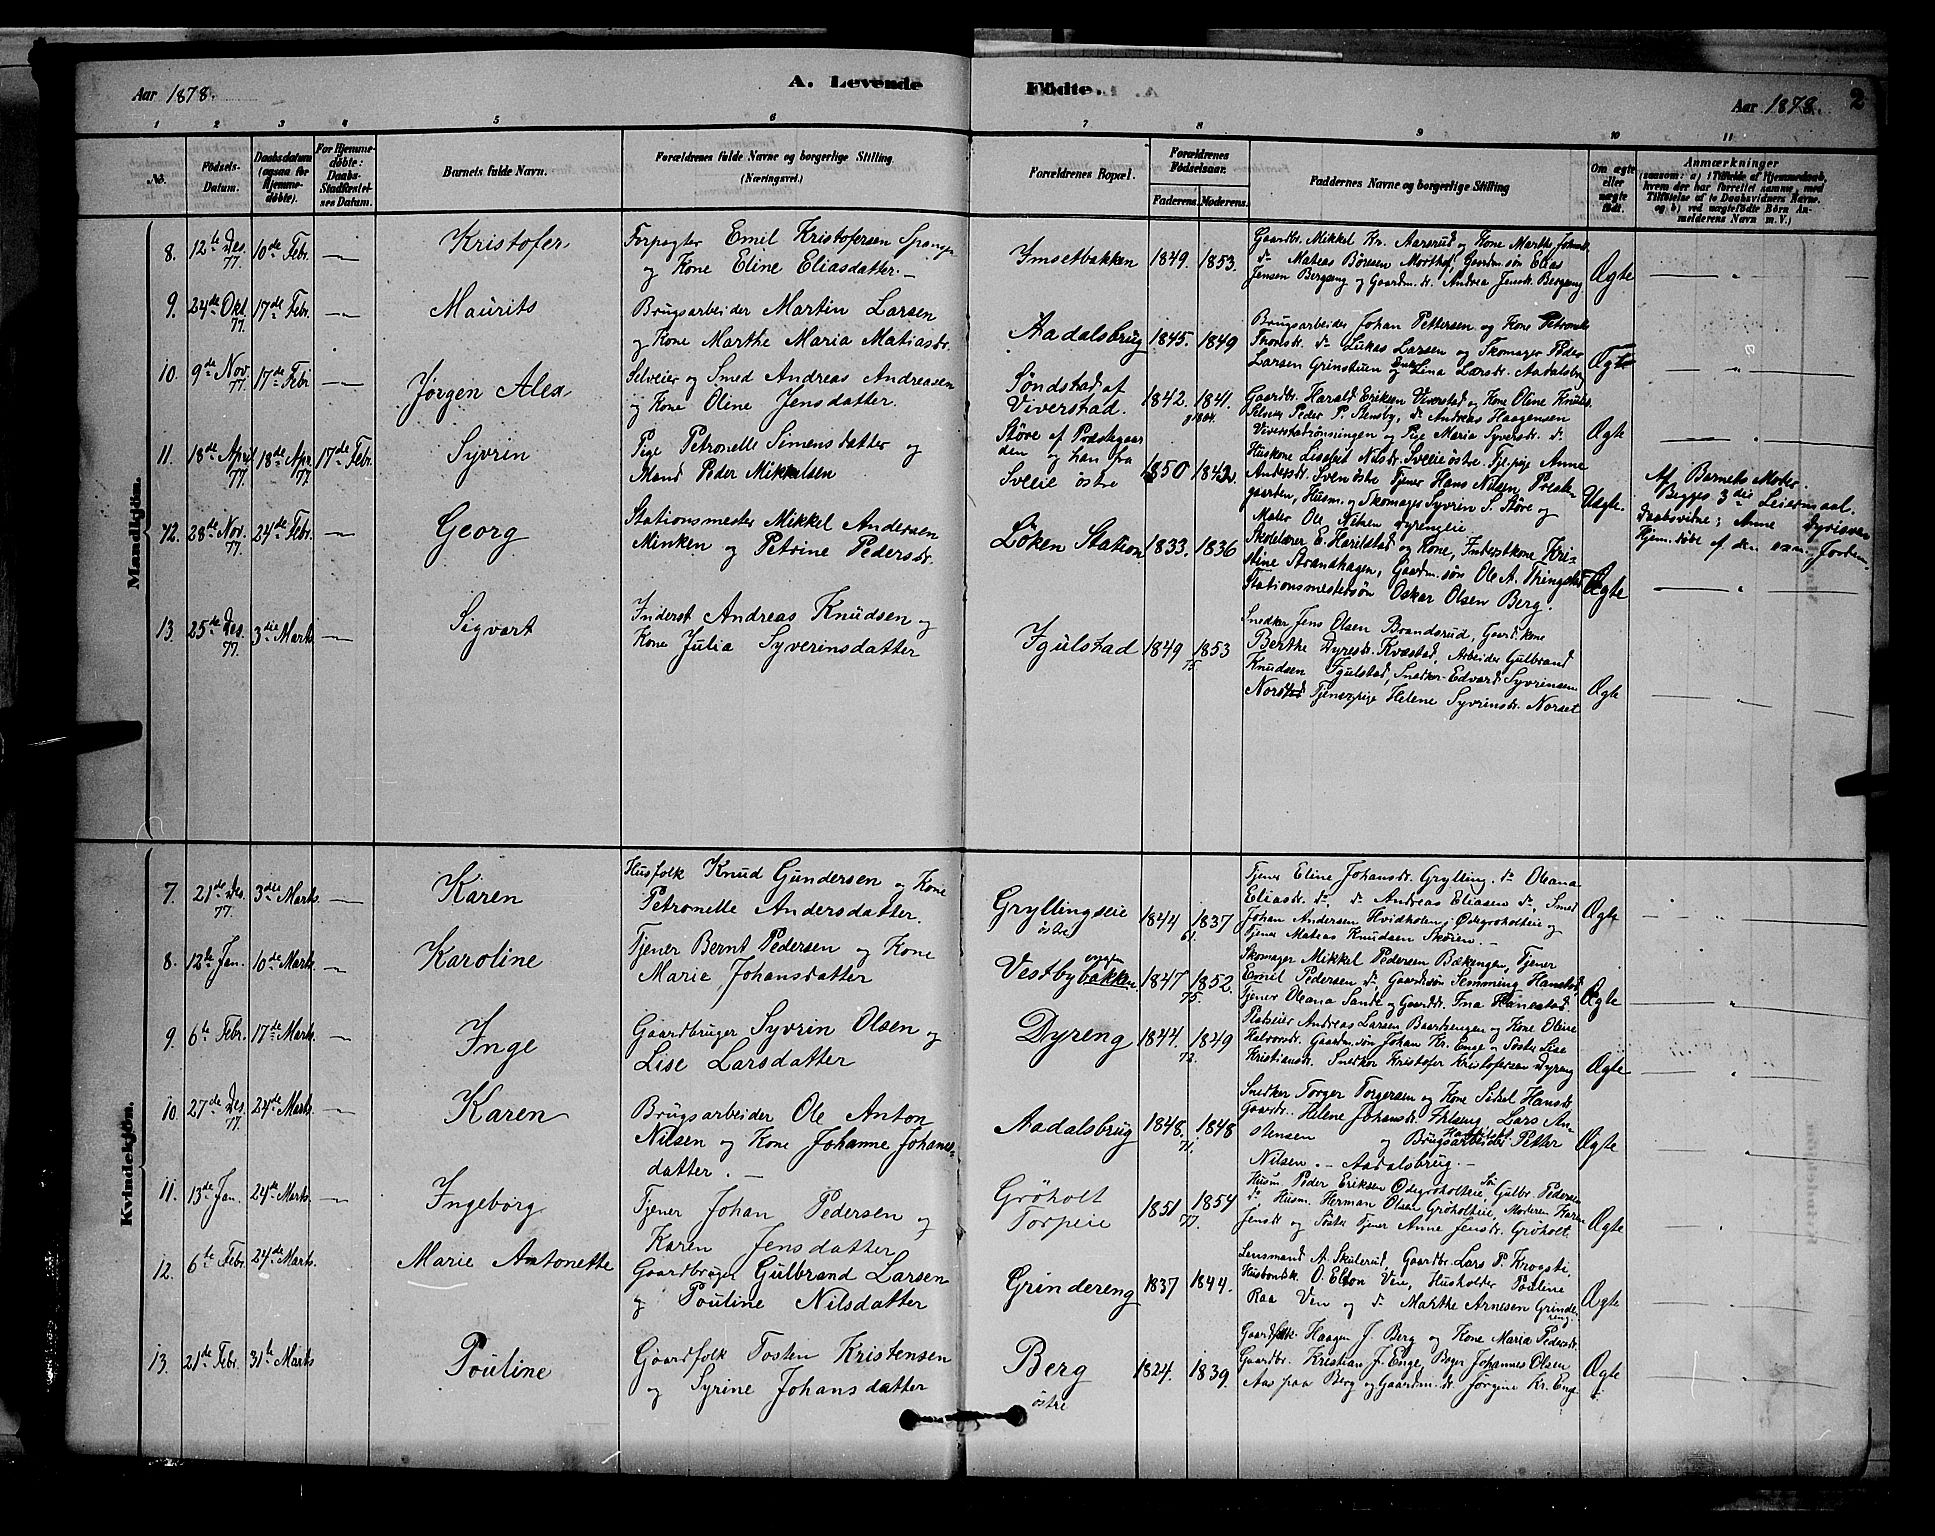 Aar 1878.
A. Levende
Födte.
Aar 1878.
2
1 2 3 4 5 6 7 8 9 10 11
No.
Födsels-Datum.
Daabsdatum (ogsaa for Hjemmedöbte).
For Hjemmedöbte: Daabs-Stadfæstelses Datum.
Barnets fulde Navn.
Forældrenes fulde Navne og borgerlige Stilling.
(Næringsvei.)
Forældrenes Bopæl.
Forældrenes Födselsaar.
Faderens. Moderens.
Faddernes Navne og borgerlige Stilling
Om ægte eller uægte födt.
Anmærkninger
(saasom: a) i Tilfælde af Hjemmedaab,
hvem der har forrettet samme, med
Tilföielse af to Daabsvidners Navne.
og b) ved uægtefödte Börn An-
melderens Navn m. V.)
Mandkjön.
8. 12te Des. 77. 10de Febr. — Kristofer
Forpagter Emil Kristofersen Spangen
og Kone Eline Eliasdatter. —
Imsetbakken 1849. 1853.
Gaardbr. Mikkel Kr. Aarsrud og Kone Marthe Johansd.
do Matias Børesen Morthof, Gaardm. søn Elias
Jensen Bergeng og Gaardm. dr. Andrea Jensdr. Bergeng
Ægte
9. 24de Okt. 77. 17de Febr. — Maurits
Brugsarbeider Martin Larsen
og Kone Marthe Maria Matiasdr.
Aadalsbrug 1845. 1849
Brugsarbeider Johan Pettersen og Kone Petronelle
Thorsdr. do Lukas Larsen og Skomager Peder
Larsen Grinstuen og Enke Lina Larsdr. Aadalsbr.
Ægte
10. 9de Nov. 77. 17de Febr — Jørgen Alea
Selveier og Smed Andreas Andreasen
og Kone Oline Jensdatter.
Söndstad af
Viverstad. 1842. 1841.
Gaardbr. Harald Eriksen Viverstad og Kone Oline Knuds.
Peder P. Stensby, do Andreas Haagensen
Viverstadrönningen og Pige Maria Syversdr. do
Ægte
11. 18de April 77. 18de Apr. 77 17de Febr. Syvrin
Pige Petronelle Simensdatter og
Mand Peder Mikkelsen
Støre af Præstegaar
den og han fra
Sveie østre 1850 1842.
Huskone Lisebet Nilsdr. Sveeie østre Tj. pige Anne
Andersdr. Sveen østre Tjener Hans Nilsen, Præste
gaarden, Husm. og Skomager Syvrin S. Støre og
Maler Ole Nilsen Dyrengeie
Uægte.
Af Barnets Moder.
Begges 3die Leiermaal.
Daabsvidne: Anne
Hjem. døbt af den exm. Jordem.
12. 28de Nov. 77. 24de Febr. — Georg
Stationsmester Mikkel Andersen
Minken og Petrine Pedersdr.
Löken Station 1833. 1836
Skolelærer E. Harildstad og Kone, Inderstkone Kri-
stine Strandhagen, Gaardm. søn Ole A. Thingstad
Stationsmestersøn Oskar Olsen Berg.
Ægte
13. 25de Des. 77. 3die Marts — Sigvart
Inderst Andreas Knudsen og
Kone Julia Syverinsdatter
Igulstad 1849 75. 1853
Snedker Jens Olsen Brandsrud, Gaardkone
Berthe Dyresdr. Kvæstad, Arbeider Gulbrand
Knudsen Igulstad, Snedker Edvard Syvrinsen
Norstad Tjenerpige Helene Syvrinsdr. Norset
Ægte
Kvindekjön.
7. 21de Des. 77. 3die Marts. — Karen
Husfolk Knud Gundersen og Kone
Petronelle Andersdatter.
Gryllingseie
østre 1844 61. 1837
Tjener Eline Johansdr. Grylling. do Oleana
Eliasdr. do, do Andreas Eliasen do, Smed
Johan Andersen Hvidholen, Ødegroholteie og
Tjener Matias Knudsen Skören. —
Ægte
8. 12te Jan. 10de Marts. — Karoline
Tjener Bernt Pedersen og Kone
Marie Johansdatter
Vestbybakken 1847 75. 1852.
Skomager Mikkel Pedersen Bækengen, Tjener
Emil Pedersen do. Gaardsøn Semming Hanestad,
Tjener Oleana Sande og Gaarddr. Ina Hanestad.
Ægte
9. 6te Febr. 17de Marts. — Inge
Gaardbruger Syvrin Olsen og
Lise Larsdatter
Dyreng 1844. 72. 1849
Pladseier Andreas Larsen Baarhengen og Kone Oleine
Halvorsdr. Gaardm. søn Johan Kr. Enge og Søster Lise
Kristiansdr. Snedker Kristofer Kristofersen Dyreng
Ægte
10. 27de Des. 77. 24de Marts. — Karen
Brugsarbeider Ole Anton
Nilsen og Kone Johanne Johans-
datter. —
Aadalsbrug 1848. 71. 1848
Snedker Torger Torgersen og Kone Sidsel Hansdr.
Gaardbr. Helene Johansdr. Lars An-
stensen og Brugsarbeider Petter
Nilsen. — Aadalsbrug. —
Ægte
11. 13de Jan. 24de Marts. — Ingeborg
Tjener Johan Pedersen og
Karen Jensdatter
Gröholt
Torpeie 1851 77. 1854
Husm Peder Eriksen Ødegroholteie, Gulbr. Pedersen
do Husm. Herman Olsen Gröholteie, Moderen Karen
Jensdr og Søster Tjener Anne Jensdr. Gröholt.
Ægte
12. 6te Febr. 24de Marts. Marie Antonette
Gaardbruger Gulbrand Larsen
og Pouline Nilsdatter
Grindereng 1837 1844.
Lensmand A. Skulerud, Gaardbr Lars P. Krogsti,
Husbondsk. O. Elton Ven, Husholder Pouline
Raa Ven og do Marthe Arnesen Grinde
reng.
Ægte
13. 21de Febr. 31te Marts Pouline
Gaardfolk Tosten Kristensen
og Syrine Johansdatter
Berg
østre 1824. 1839.
Gaardfolk. Haagen J. Berg og Kone Maria Pedersdr.
Gaardbr. Kristian J. Enge, Bager Johannes Olsen
Aas paa Berg og Gaardm. dr. Jørgine Kr. Enge
Ægte